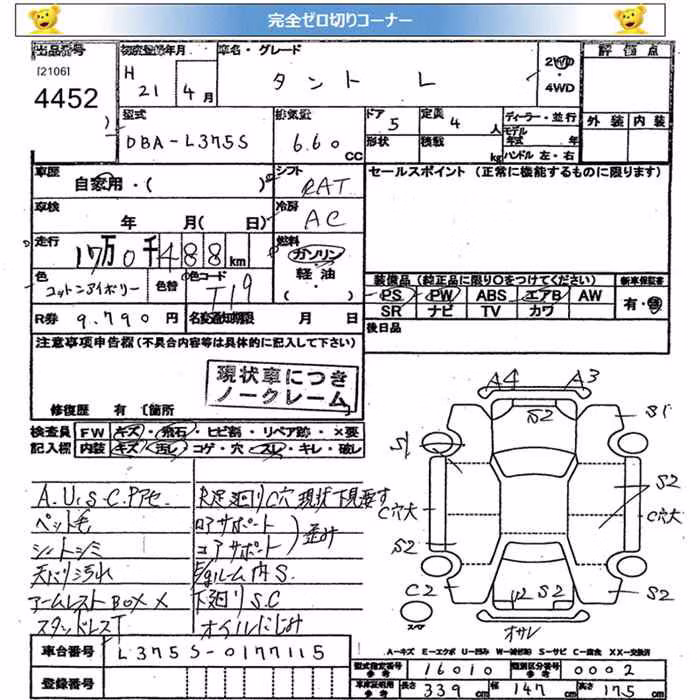 完全ゼロ切りコーナー
出品番号 初度登録年月 車名・グレード 評価点
[2106] H 21 年 4月 タント L 2WD・4WD
4452
型式 排気量 ドア 定員 ディーラー・並行 外装 内装
DBA-L375S 6.60 CC 5 4 人 モデル 年式 年
形状 積載 kg ハンドル 左・右
車歴 シフト セールスポイント (正常に機能するものに限ります)
自家用・( ) RAT
車検 冷房
年 月( 日) AC
走行 燃料
17万0千488km ガソリン
軽油
・( )
色 色替 色コード
コットンアイボリー T19
装備品 (純正品に限り○をつけてください) 新車保証書
PS PW ABS エアB AW 有・無
SR ナビ TV カワ
R券 9.790円 名変通知期限 月 日
後日品
注意事項申告欄(不具合内容等は具体的に記入して下さい)
現状車につき
ノークレーム
修復歴 有 〔箇所 〕
検査員 FW キズ・飛石・ヒビ割・リペア跡・×要
記入欄 内装 キズ・汚レ・コゲ・穴・スレ・キレ・破レ
A4 A3
S2
S1 S1
S2
C穴大 C穴大
S2
C2 U2 S2 S2
スペア オサレ
ペット毛 ロアサポート
シートシミ コアサポート 歪み
天バリ汚れ E/gルーム内S.
アームレストBOX× 下廻りS.C
スタッドレスT オイルにじみ
A-キズ E-エクボ U-凹み W-補修跡 S-サビ C-腐食 XX-交換済
車台番号 L375S-0177115
登録番号
型式指定番号 参考 16010 類別区分番号 参考 0002
車庫証明用 参考 長さ 339cm 幅 147cm 高さ 175cm